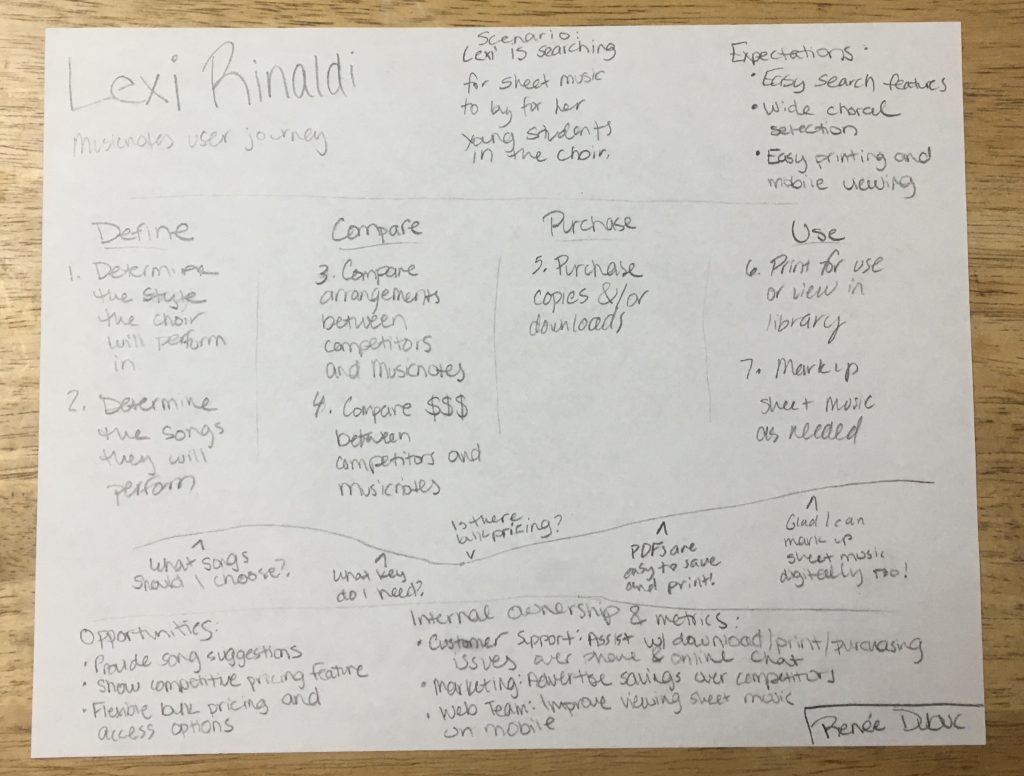 Lexi Rinaldi
Musicnotes user journey
Scenario:
Lexi is searching
for sheet music
to by for her
young students
in the choir.
Expectations:
• Easy search features
• Wide choral
selection
• Easy printing and
mobile viewing
Define
1. Determine
the style
the choir
will perform
in
2. Determine
the songs
they will
perform
Compare
3. Compare
arrangements
between
competitors
and Musicnotes
4. Compare $$$
between
competitors and
musicnotes
Purchase
5. Purchase
copies &/or
downloads
Use
6. Print for use
or view in
library
7. Mark up
sheet music
as needed
^
What songs
should I choose?
^
What key
do I need?
Is there
bulk pricing?
v
^
PDFs are
easy to save
and print!
^
Glad I can
mark up
sheet music
digitally too!
Opportunities:
• Provide song suggestions
• Show competitive pricing feature
• Flexible bulk pricing and
access options
Internal ownership & metrics:
• Customer Support: Assist w/ download/print/purchasing
issues over phone & online chat
• Marketing: Advertise savings over competitors
• Web Team: Improve viewing sheet music
on mobile
Renée Dubuc